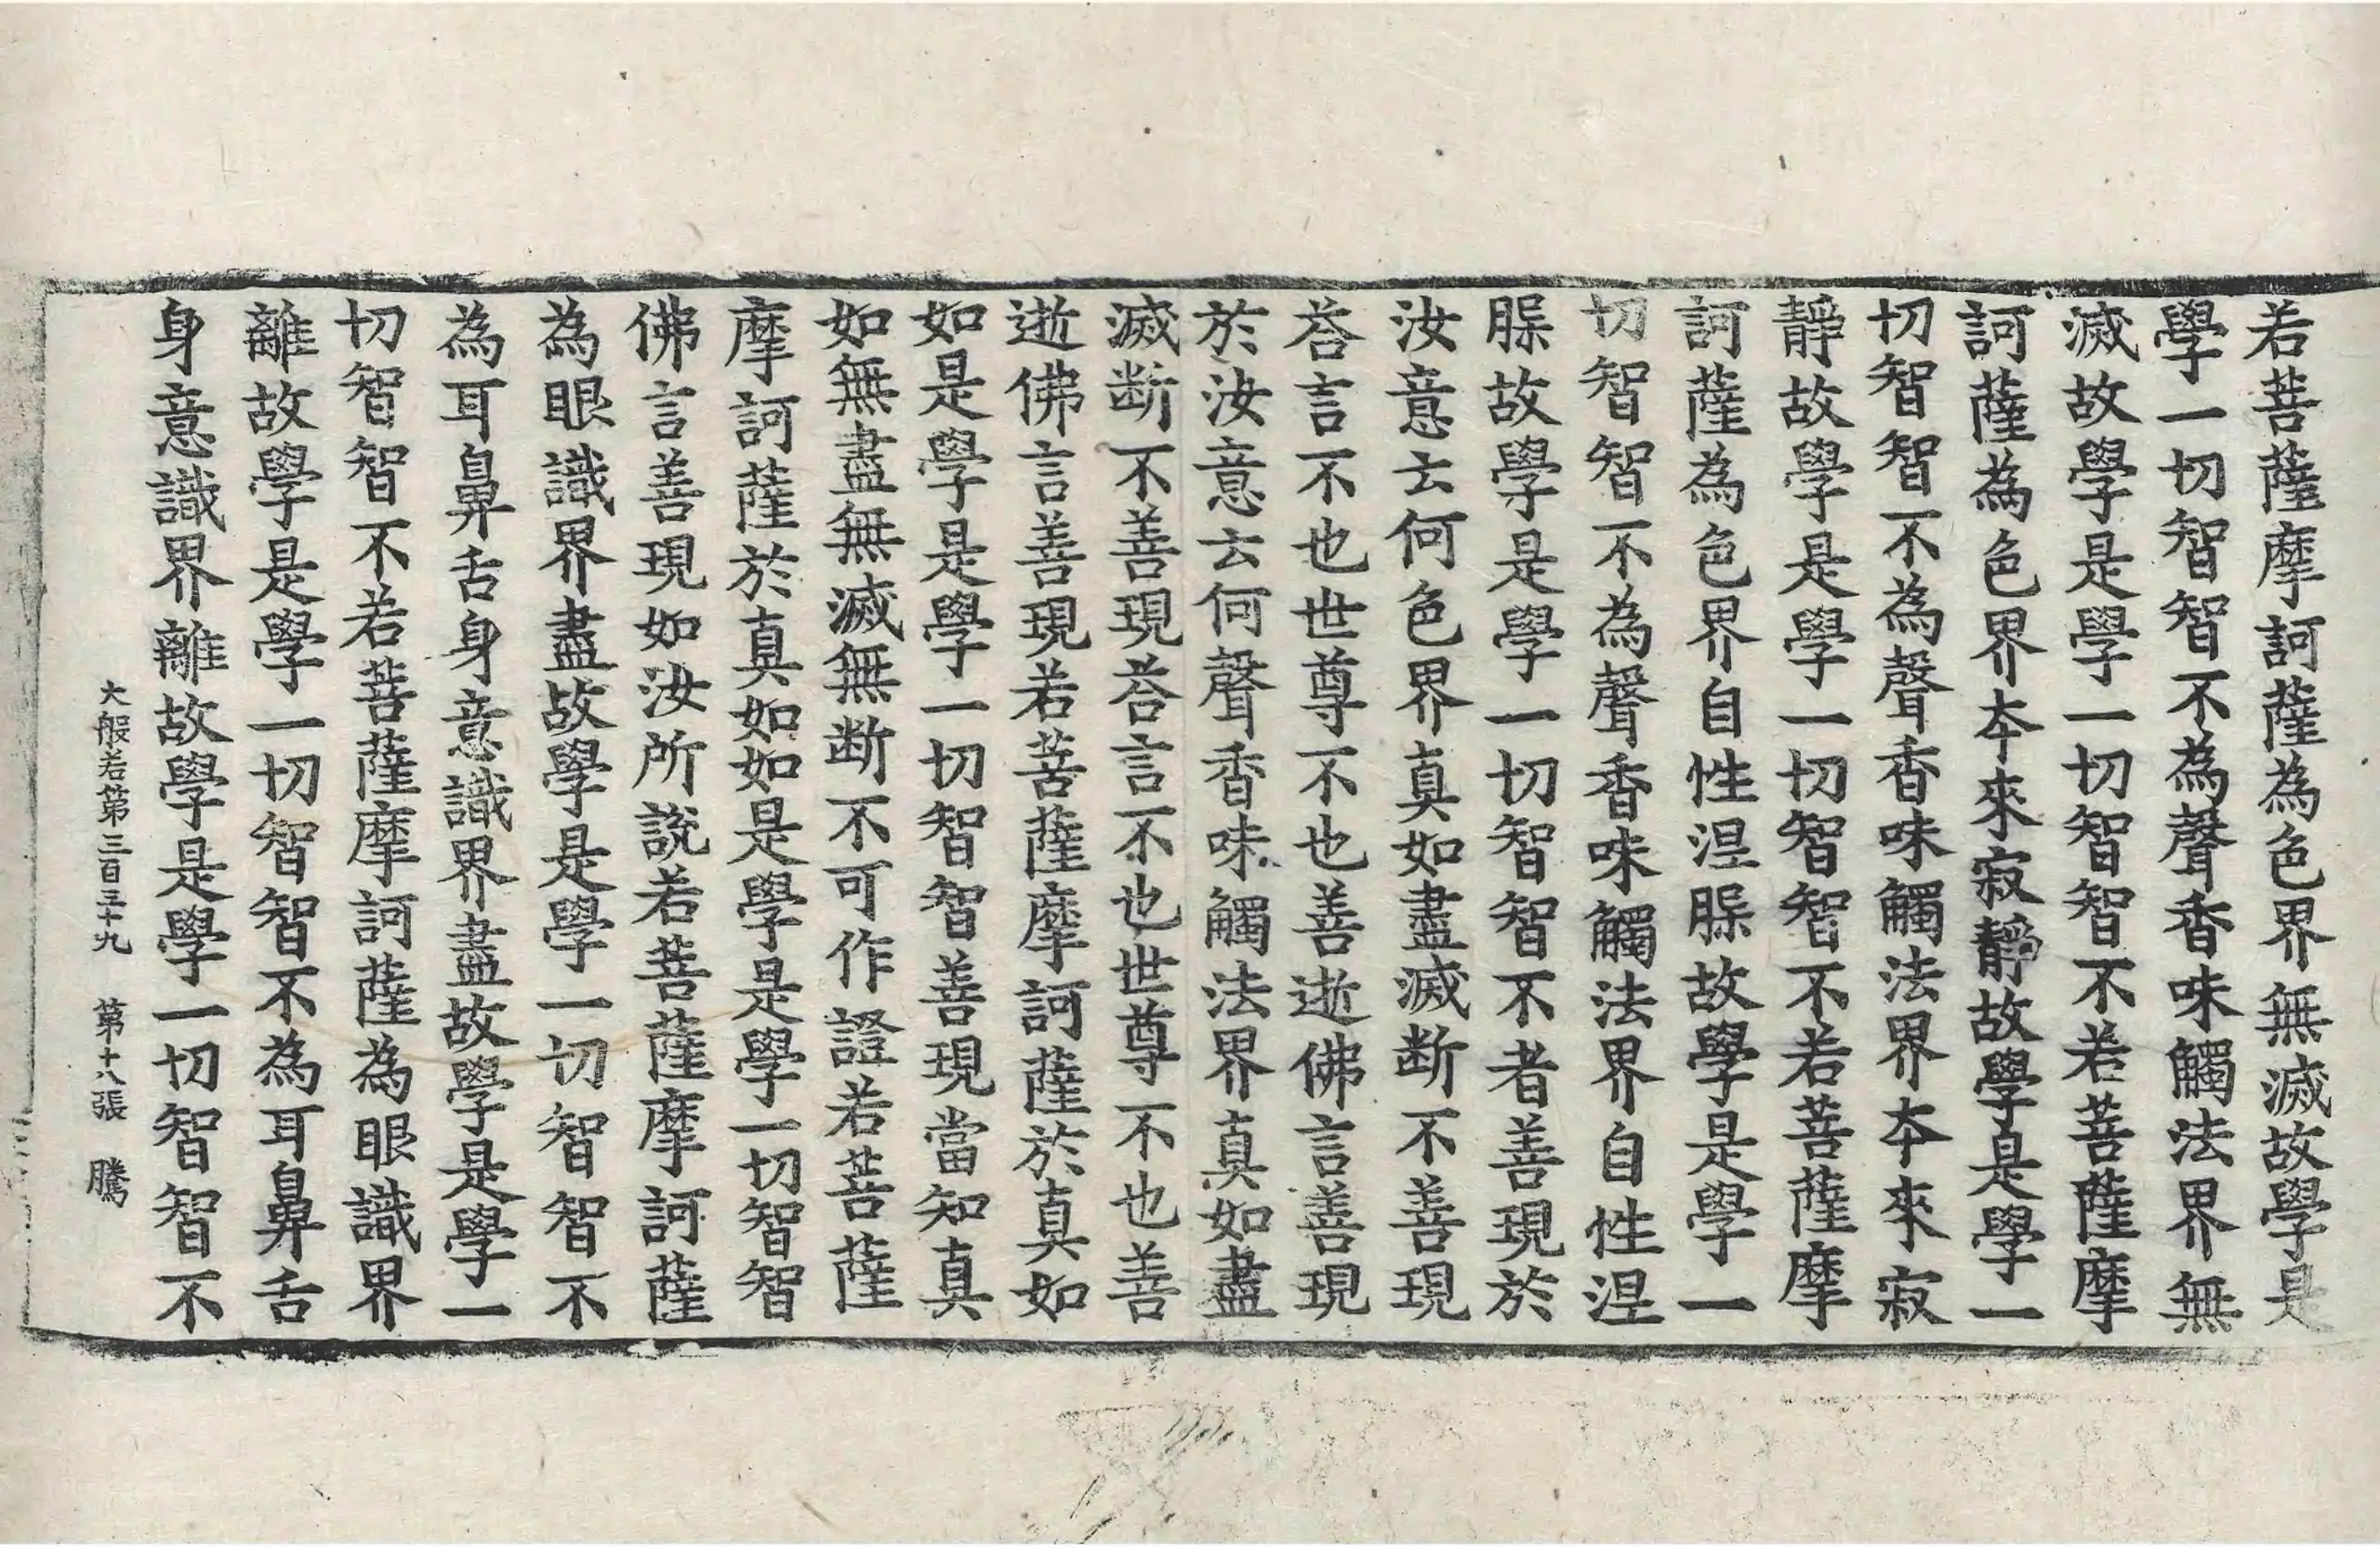 若菩薩摩訶薩為色界無滅故學是
學一切智智不為聲香味觸法界無
滅故學是學一切智智不若菩薩摩
訶薩為色界夲來寂靜故學是學一
切智智不為聲香味觸法界夲來寂
靜故學是學一切智智不若菩薩摩
訶薩為色界自性涅脲故學是學一
切智智不為聲香味觸法界自性涅
脲故學是學一切智智不者善現於
汝意云何色界真如盡滅断不善現
荅言不也世尊不也善逝佛言善現
於汝意云何聲香味觸法界真如盡
滅断不善現荅言不也世尊不也善
逝佛言善現若菩薩摩訶薩於真如
如是學是學一切智智善現當知真
如無盡無滅無断不可作證若菩薩
摩訶薩於真如如是學是學一切智智
佛言善現如汝所說若菩薩摩訶薩
為眼識界盡故學是學一切智智不
為耳鼻舌身意識界盡故學是學一
切智智不若菩薩摩訶薩為眼識界
離故學是學一切智智不為耳鼻舌
身意識界離故學是學一切智智不
大般若第三百三十九 第十八張 騰